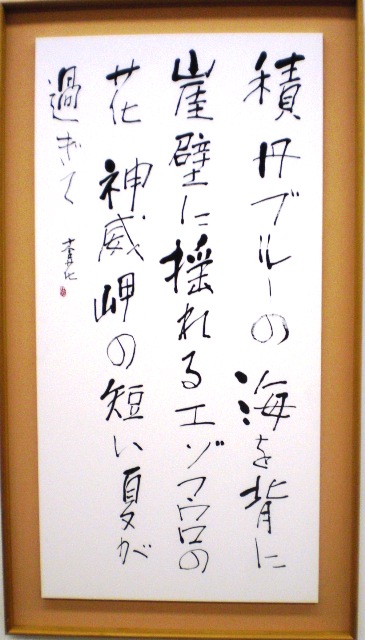 積丹ブルーの海を背に
崖壁に揺れるエゾフウロの
花 神威岬の短い夏が
過ぎて